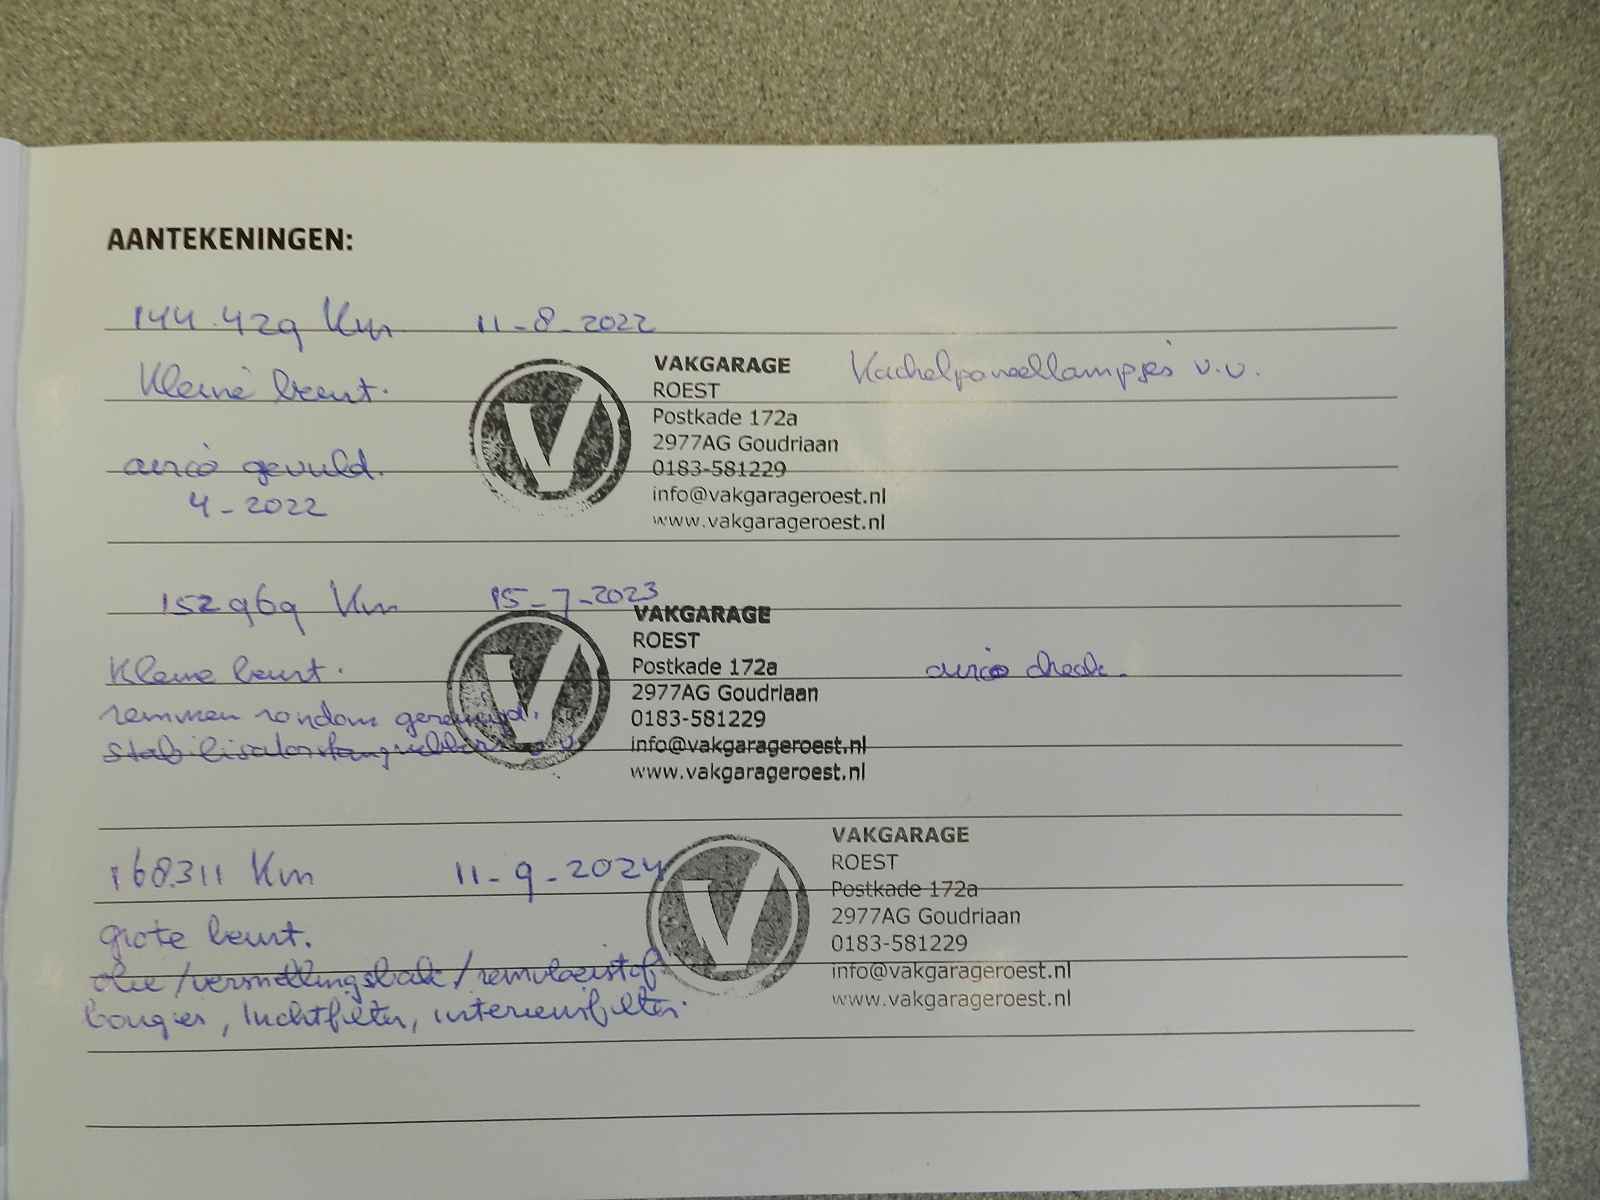 AANTEKENINGEN:
144.429 Km 11-8-2022
Kleine beurt.
VAKGARAGE
ROEST
Postkade 172a
2977AG Goudriaan
0183-581229
info@vakgarageroest.nl
www.vakgarageroest.nl
Kachelpaneellampjes v.v.
airco gevuld.
4-2022
152969 Km 15-7-2023
Kleine beurt.
remmen rondom gereinigd.
stabilisatorstangrubbers v.v.
VAKGARAGE
ROEST
Postkade 172a
2977AG Goudriaan
0183-581229
info@vakgarageroest.nl
www.vakgarageroest.nl
airco check.
168.311 Km 11-9-2024
grote beurt.
olie/versnellingsbak/remvloeistof
bougies, luchtfilter, interieurfilter.
VAKGARAGE
ROEST
Postkade 172a
2977AG Goudriaan
0183-581229
info@vakgarageroest.nl
www.vakgarageroest.nl